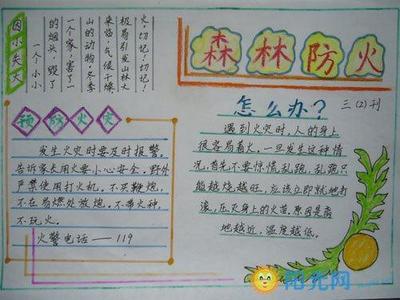 森林防火
三(2)刊
因小失大
一个小小
的烟头，毁了
一个家，害了一
山的动物，冬季
来临，气候干燥
极易引发山林大
火，切记！切记！
预防火灾
发生火灾时要及时报警。
告诉家长用火要小心安全，野外
严禁使用打火机，不买鞭炮，
不在易燃处放炮，不带火种，
不玩火。
火警电话——119
怎么办？
遇到火灾时，人的身上
很容易着火，一旦发生这种情
况，首先不要惊慌乱跑，乱跑只
能越烧越旺，应该立即就地打
滚，压灭身上的火苗。原因是离
地越近，温度越低。
阳光网